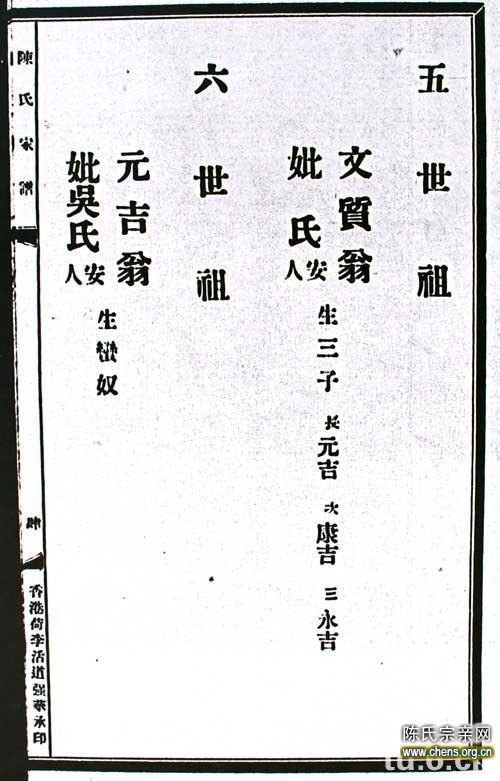 五世祖
文質翁
妣氏安人
生三子 長元吉 次康吉 三永吉
六世祖
元吉翁
妣吳氏安人
生蠻奴
陳氏家譜
香港荷李活道强華承印
陈氏宗亲网
www.chens.org.cn